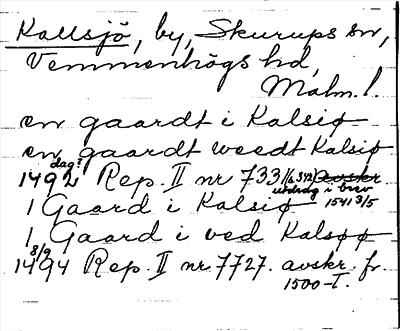 Kallsjö, by, Skurups sn,
Vemmenhögs hd,
Malm. l.
en gaardt i Kalsiø
en gaardt weedt Kalsiø
dag?
1492 Rep. II nr 733 avskr
utdrag i brev
1 Gaard i Kalsiø 1541 3/5
1 Gaard i ved Kalsøø
8/9
1494 Rep. II nr. 7727. avskr. fr.
1500-I.